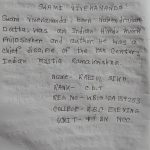 SWAMI VIVEKANANDA
Swami Vivekananda born Narendranath
Datta, was an Indian Hindu monk
Philosopher, and author. He was a
chief disciple of the 19th Century
Indian mystic Ramakrishna.
NAME-
RANK- C.D.T
REG NO-
COLLEGE- EVENING
UNIT- BN NCC.